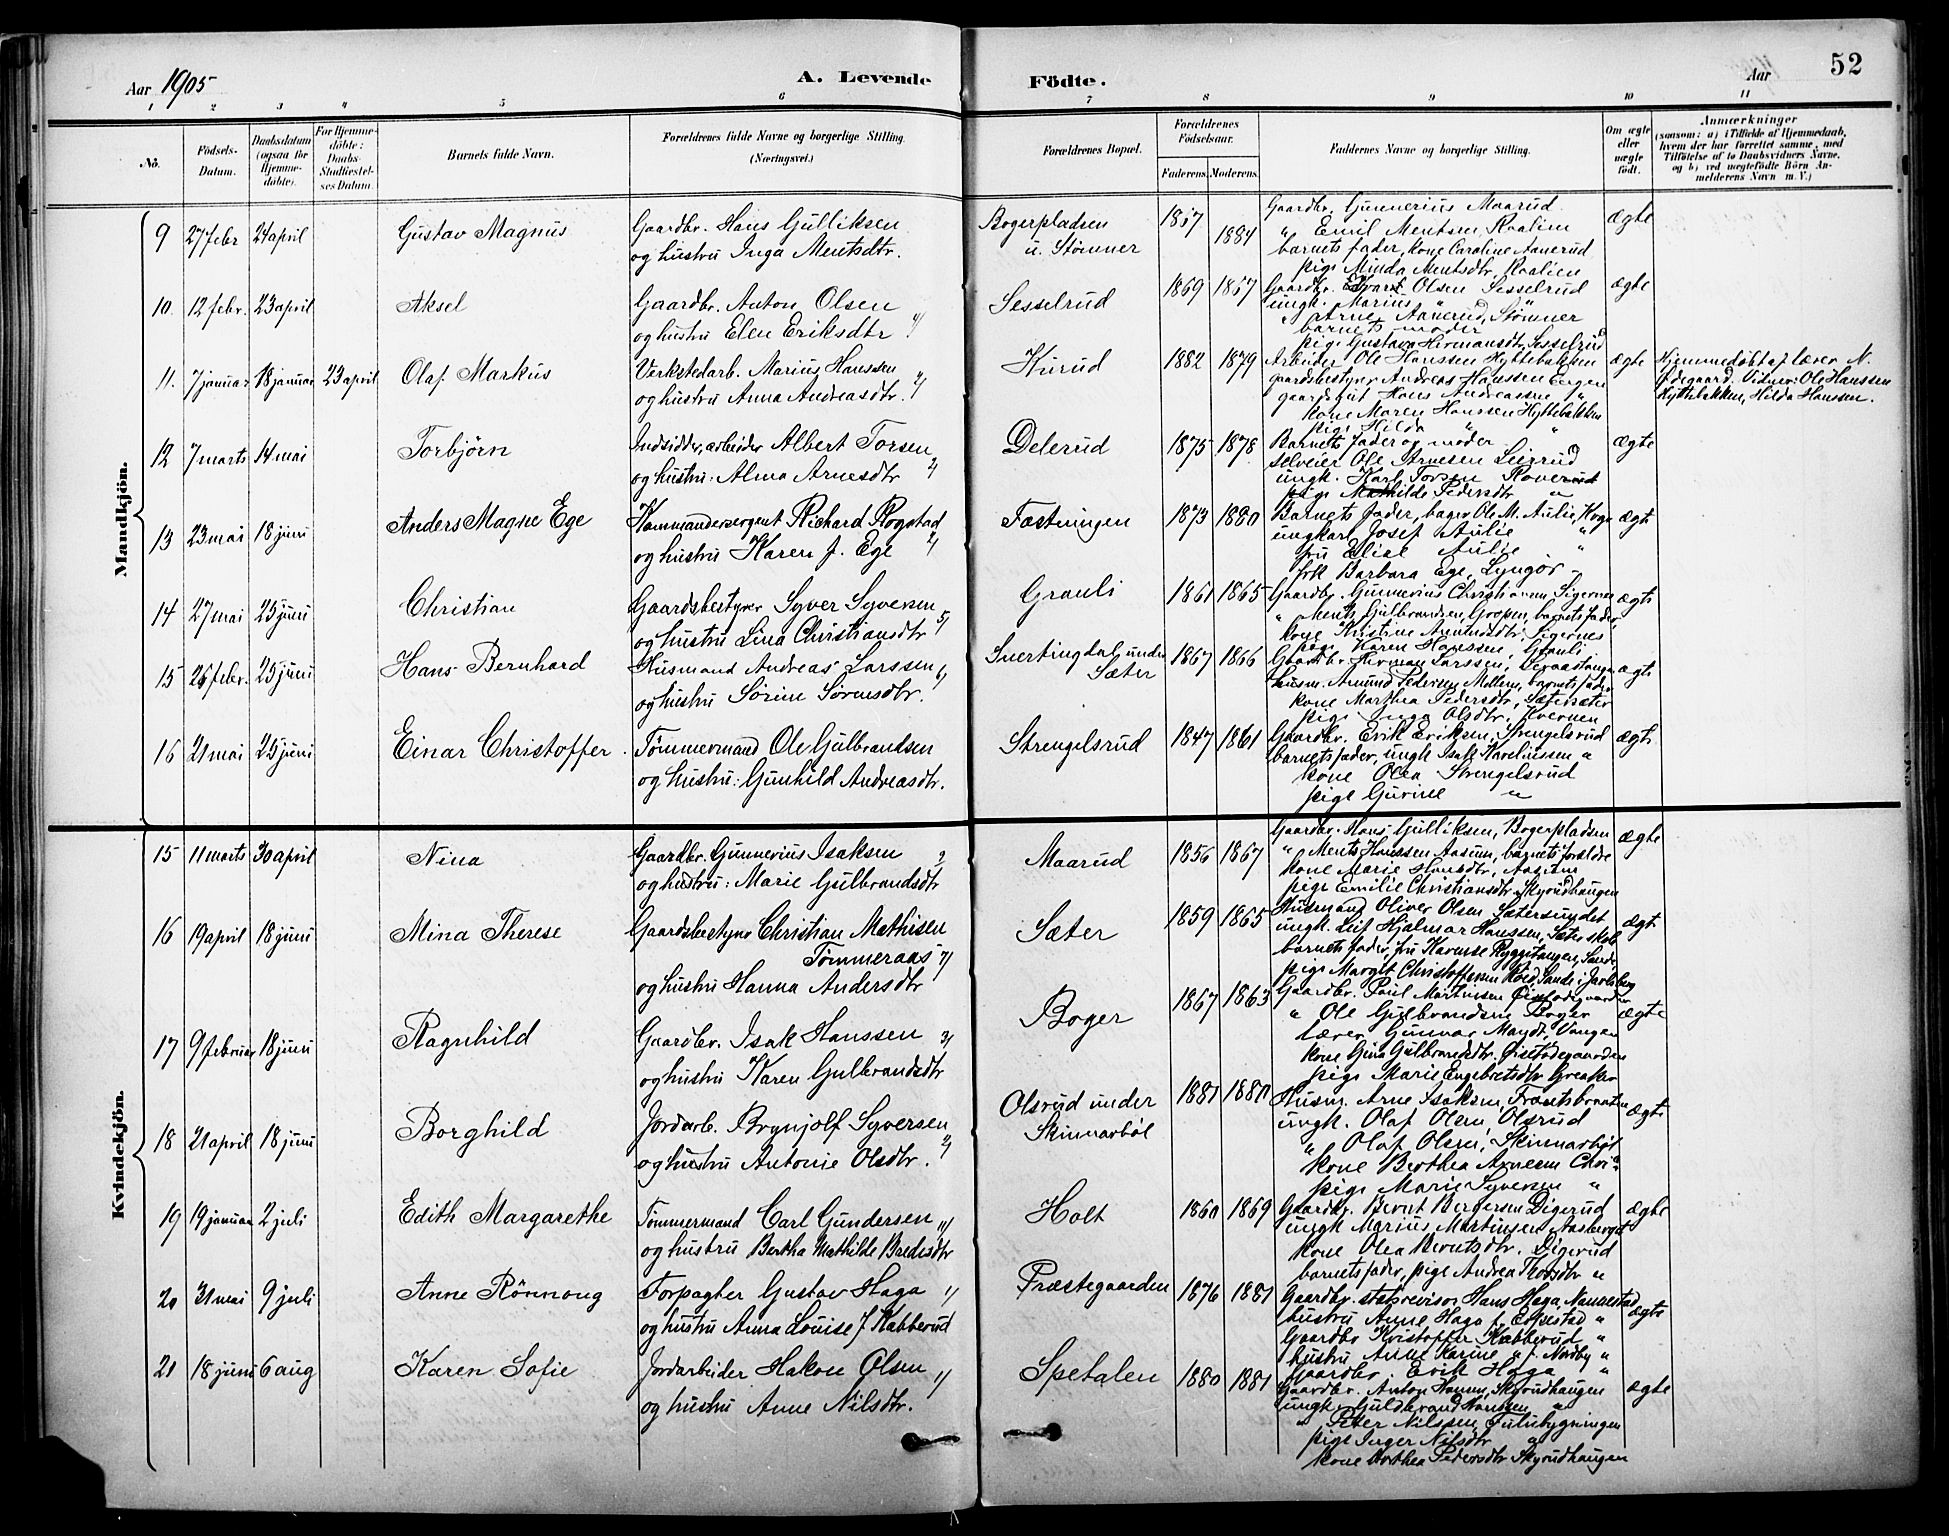 Aar 1905
A. Levende
Födte.
Aar
52
1 2 3 4 5 6 7 8 9 10 11
No.
Födsels-
Datum.
Daabsdatum
(ogsaa för
Hjemme-
döbte).
For Hjemme-
döbte:
Daabs-
Stadfæstel-
ses Datum.
Barnets fulde Navn.
Forældrenes fulde Navne og borgerlige Stilling.
(Næringsvei.)
Forældrenes Bopæl.
Forældrenes
Fødselsaar.
Faderens. Moderens.
Faddernes Navne og borgerlige Stilling.
Om ægte
eller
uægte
födt.
Anmærkninger
(saasom: a) i Tilfælde af Hjemmedaab,
hvem der har forrettet samme, med
Tilföielse af to Daabsvidners Navne,
og b) ved uægtefödte Börn An-
melderens Navn m. V.)
Mandkjön.
9 27 febr 24 april Gustav Magnus Gaardbr. Hans Gulliksen
og hustru Inga Mentsdtr.
Bogerpladsen
u. Stømner
1884
Gaardbr. Gunnerius Maarud
" Emil Mentsen, Raalien
barnets fader, kone Caroline Aanerud
pige Minda Mentsdtr, Raalien
ægte
10. 12 febr. 23 april Aksel Gaardbr. Anton Olsen
og hustru Elen Eriksdtr 4/
Sesselrud 1869
Gaardbr. Olsen Sesselrud
ungk. Marius "
" Arne Aanerud, Stømner
barnets moder
pige Gustava Hermansdtr, Sesselrud
ægte
11. 7 januar 18 januar 23 april Olaf Markus Verkstedarb. Marius Hanssen
og hustru Anna Andreasdtr. 2/
Kurud 1882 1879
Arbeider Ole Hanssen Hyttebakken
gaardsbestyrer Andreas Hanssen Eegen
Hans Andreassen "
kone Maren Hanssen Hyttebakken
pige Hilda " "
ægte
Hjemmedøbt af lærer N.
Ødegaard. Vidner: Ole Hanssen
Hyttebakken, Hilda Hanssen.
12 7 marts 14 mai Torbjörn Indsidder, arbeider Albert Torsen
og hustru: Alma Arnesdtr 2/
Delerud 1875 1878
Barnets fader og moder
selveier Ole Arnesen Leirud
ungk. Karl Torsen Roverud
pige Mathilde Pedersdtr "
ægte
13 23 mai 18 juni Anders Magne Ege Kommandersergent Richard Rogstad
og hustru Karen f. Ege 2/
Fæstningen 1873 1880
Barnets fader, bager Ole M. Aulie,
ungkarl Josef Aulie "
fru Elise Aulie "
frk Barbara Ege, Lyngör
ægte
14 27 mai 25 juni Christian Gaardsbestyrer Syver Syversen
og hustru Lina Christiansdtr 5/
Grauli 1861 1865
Gaardbr. Gunnerius Christiansen Sigernes
" Ments Gulbrandsen, Gropen, barnets fader,
kone Kristine Amundsdtr, Sigernes
pige Karen Hanssen, Grauli
ægte
15 26 febr. 25 juni Hans Bernhard Husmand Andreas Larssen
og hustru Sörine Sörensdtr. 6/
Snertingdal under
Sæter
1867 1866
Gaardbr. Herman Larssen,
husm. Amund Pedersen Mellem, barnets fader
kone Marthea Pedersdtr, Sætersæter
pige Inga Olsdtr, Kvernen
ægte
16 21 mai 25 juni Einar Christoffer Tømmermand Ole Gulbrandsen
og hustru: Gunhild Andreasdtr.
Strengelsrud 1847 1861
Gaardbr. Erik Eriksen, Strengelsrud
barnets fader, ungk Isak Karelinssen "
kone Olea Strengelsrud
pige Gurine "
ægte
Kvindekjön.
15 11 marts 30 april Nina Gaardbr. Gunnerius Isaksen
og hustru: Marie Gulbrandsdtr
Maarud 1856 1867
Gaardbr. Hans Gulliksen, Bogerpladsen
" Ments Hanssen Aasum, barnets forældre
kone Marie Hansdtr, Aasum
pige Emilie Christiansdtr, Skyrudhaugen
ægte
16 19 april 18 juni Mina Therese Gaardsbestyrer Christian Mathisen
Tømmeraas 7/
og hustru Hanna Andersdtr
Sæter 1859 1865
Husmand Oliver Olsen Sætersundet
ungk. Leif Hjalmar Hanssen, Sæter skole
barnets fader, fru Karense Ryggetangen, Sande
pige Margit Christoffersen Roed, Sande i Jarlsberg
ægte
17 9 februar 18 juni Ragnhild Gaardbr. Isak Hanssen 3/
og hustru Karen Gulbrandsdtr
Boger 1867 1863
Gaardbr. Paul Martinsen Öisetødegaarden
" Ole Gulbrandsen Boger
lærer Gunvar Mandt, Vangen
kone Gina Gulbrandsdtr. Öisetødegaarden
pige Marie Engebretsdtr Greaker
ægte
18 21 april 18 juni Borghild Jordarb. Brynjolf Syversen
og hustru Antonie Olsdtr. 2/
Olsrud under
Skinnarböl
1881 1880
Husm. Arne Isaksen,
ungk. Olaf Olsen, Olsrud
" Olaf Olsen, Skinnarböl
kone Berthea Arnesen
pige Marie Syversen "
ægte
19 19 januar 2 juli Edith Margarethe Tømmermand Carl Gundersen 11/
og hustru Bertha Mathilde Bredesdtr
Holt 1860 1869
Gaardbr. Bernt Bergersen Digerud
ungk Marius Martinsen Aasberget
kone Olea Berntsdtr. Digerud
barnets fader, pige Andrea Thorsdtr "
ægte
20 31 mai 9 juli Anne Rönnoug Forpagter Gustav Haga 1/
og hustru Anna Louise f. Kabberud
Præstegaarden 1876 1881
Gaardbr. statsrevisor Hans Haga, Nannestad
hustru Anne Haga f. "
Gaardbr Kristoffer Kabberud "
hustru Anne Karine " f. Nordby "
Gaardbr. Erik Haga "
ægte
21 18 juni 6 aug Karen Sofie Jordarbeider Hakon Olsen 1/
og hustru Anne Nilsdtr.
Spetalen 1880 1881
Gaardbr. Anton Hansen, Skyrudhaugen
ungk. Guldbrand Hanssen "
" Peter Nilssen, Julubygningen
pige Inger Nilsdtr "
kone Dorthea Pedersdtr Skyrudhaugen
ægte